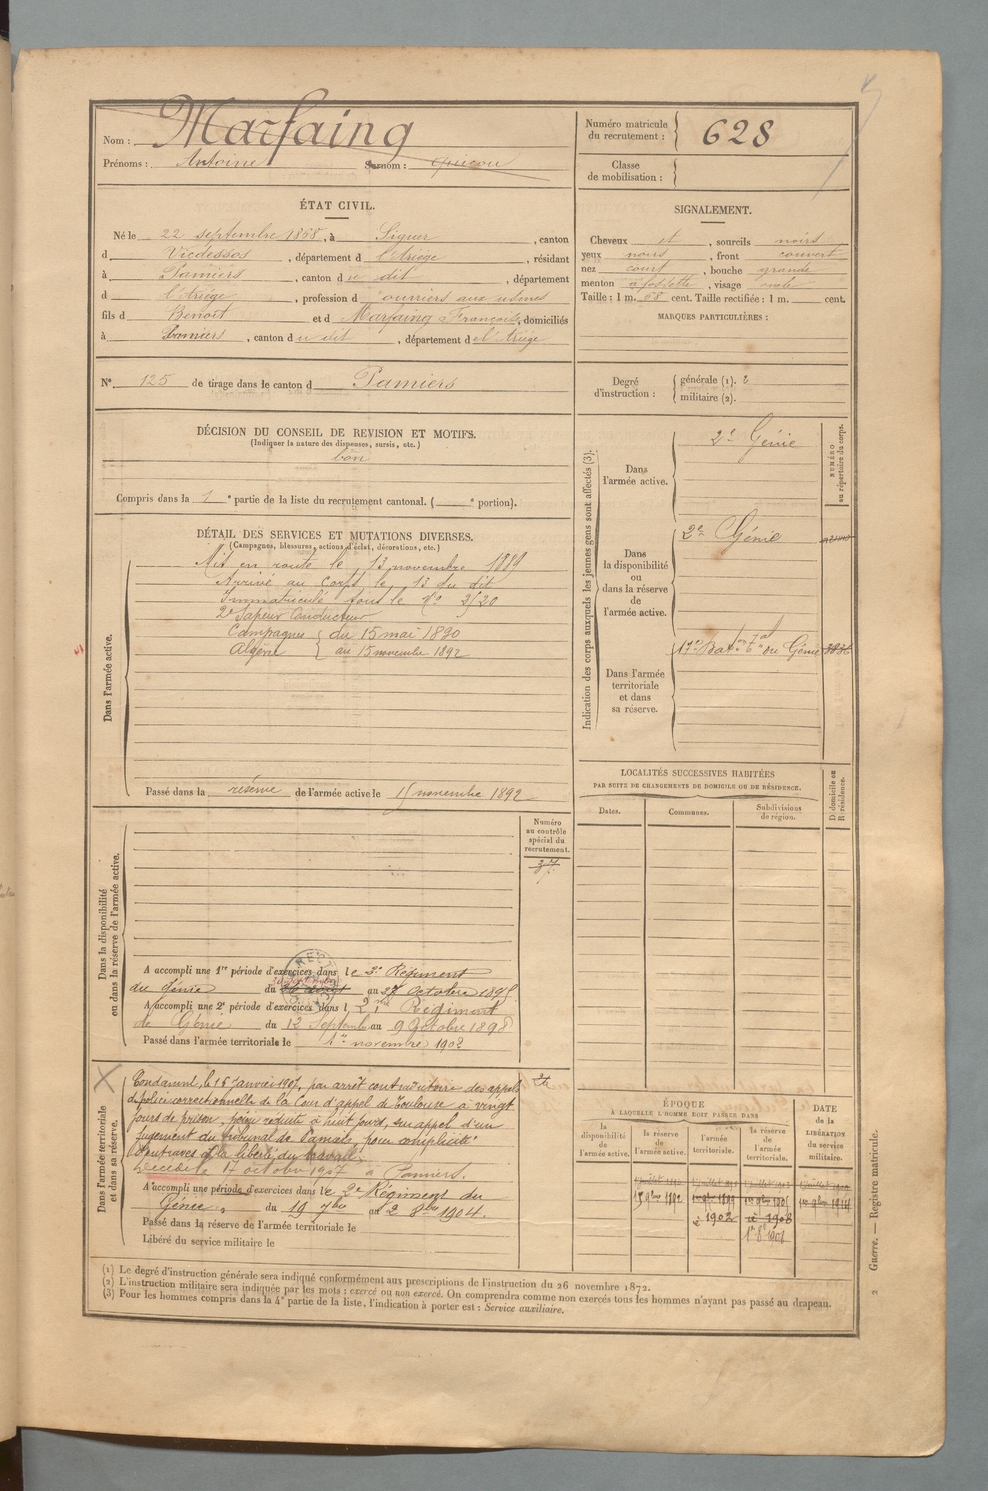 Nom : Marfaing
Prénoms : Antoine Surnom : Quicou
Numéro matricule du recrutement : 628
Classe de mobilisation :
ÉTAT CIVIL.
Né le 22 septembre 1868, à Siguer, canton
d Vicdessos, département d l'Ariège, résidant
à Pamiers, canton d u dit, département
d l'Ariège, profession d'ouvriers aux usines
fils d Benoit et d Marfaing Françoise, domiciliés
à Pamiers, canton d u dit, département d e l'Ariège
SIGNALEMENT.
Cheveux et, sourcils noirs
yeux noirs, front couvert
nez court, bouche grande
menton à fossette, visage ovale
Taille : 1 m. 58 cent. Taille rectifiée : 1 m. cent.
MARQUES PARTICULIÈRES :
N° 125 de tirage dans le canton d Pamiers
Degré d'instruction : générale (1). 2
militaire (2).
DÉCISION DU CONSEIL DE REVISION ET MOTIFS.
(Indiquer la nature des dispenses, sursis, etc.)
bon
Compris dans la 1e partie de la liste du recrutement cantonal. ( e portion).
DÉTAIL DES SERVICES ET MUTATIONS DIVERSES.
(Campagnes, blessures, actions d'éclat, décorations, etc.)
Dans l'armée active.
Mis en route le 13 novembre 1889
Arrivé au Corps le 13 du dit
Immatriculé sous le No
2e Sapeur Conducteur
Campagnes { du 15 mai 1890
Algérie { au 15 novembre 1892
Passé dans la réserve de l'armée active le 15 novembre 1892
Indication des corps auxquels les jeunes gens sont affectés (3).
NUMÉRO au répertoire du corps.
Dans l'armée active.
2e Génie
Dans la disponibilité ou dans la réserve de l'armée active.
2e Génie
Dans l'armée territoriale et dans sa réserve.
17e Baton du Génie
LOCALITÉS SUCCESSIVES HABITÉES
PAR SUITE DE CHANGEMENTS DE DOMICILE OU DE RÉSIDENCE.
Dates. Communes. Subdivisions de région. D. domicile ou R. résidence.
Dans la disponibilité ou dans la réserve de l'armée active.
Numéro au contrôle spécial du recrutement.
A accompli une 1re période d'exercices dans l e 2e Régiment
du génie du au 27 Octobre 1895
A accompli une 2e période d'exercices dans l 2me Régiment
de Génie du 12 Septemb au 9 Octobre 1898
Passé dans l'armée territoriale le 1er novembre 1902
Dans l'armée territoriale et dans sa réserve.
Condamné, le 15 Janvier 1907, par arrêt contradictoire des appels
de police correctionnelle de la Cour d'appel de Toulouse à vingt
jours de prison, peine réduite à huit jours, sur appel d'un
jugement du tribunal de Pamiers, pour complicité
d'entraves à la liberté du travail.
Décédé le 17 octobre 1907 à Pamiers.
A accompli une période d'exercices dans l e 2e Régiment du
Génie, du 19 7bre au 2 8bre 1904.
Passé dans la réserve de l'armée territoriale le
Libéré du service militaire le
ÉPOQUE
À LAQUELLE L'HOMME DOIT PASSER DANS
la disponibilité de l'armée active.
la réserve de l'armée active.
l'armée territoriale.
la réserve de l'armée territoriale.
DATE de la LIBÉRATION du service militaire.
15 9bre 1892
1902
1908
(1) Le degré d'instruction générale sera indiqué conformément aux prescriptions de l'instruction du 26 novembre 1872.
(2) L'instruction militaire sera indiquée par les mots : exercé ou non exercé. On comprendra comme non exercés tous les hommes n'ayant pas passé au drapeau.
(3) Pour les hommes compris dans la 4e partie de la liste, l'indication à porter est : Service auxiliaire.
2 Guerre. — Registre matricule.